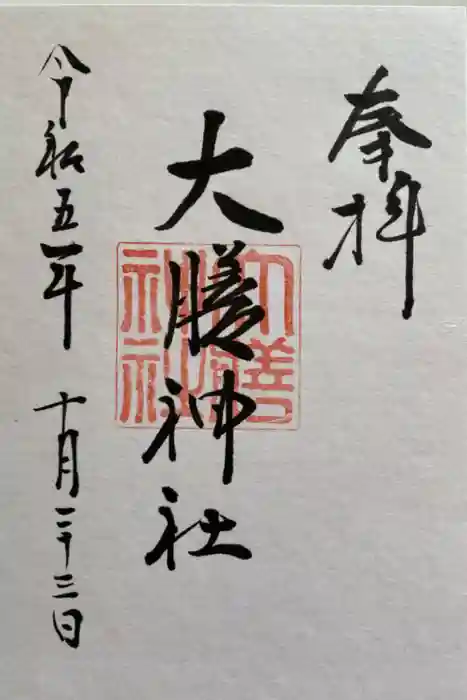 奉拝
大膳神社
令和五年 十月二十三日